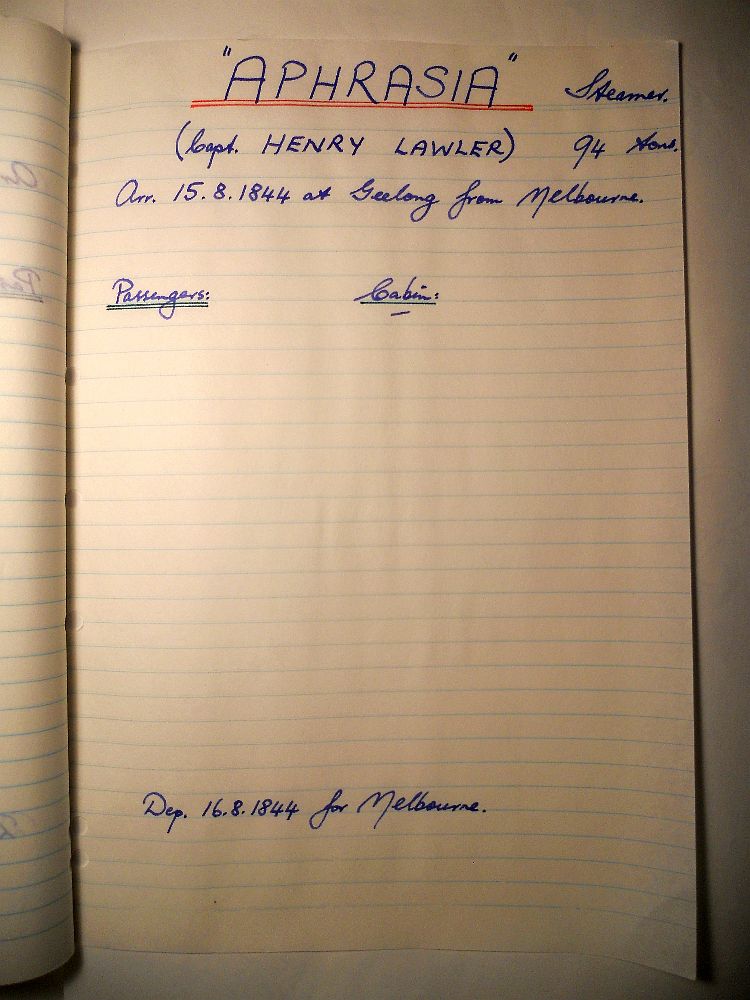 "APHRASIA" Steamer.
(Capt. HENRY LAWLER) 94 tons.
Arr. 15.8.1844 at Geelong from Melbourne.
Passengers: Cabin:
Dep. 16.8.1844 for Melbourne.